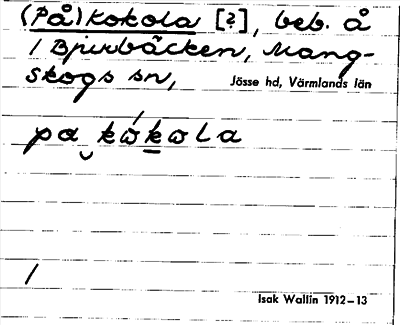 (På) Kokola [?], beb. å
/ Bjurbäcken, Mang-
skogs sn, Jösse hd, Värmlands län
pa kωkωla
/
Isak Wallin 1912–13